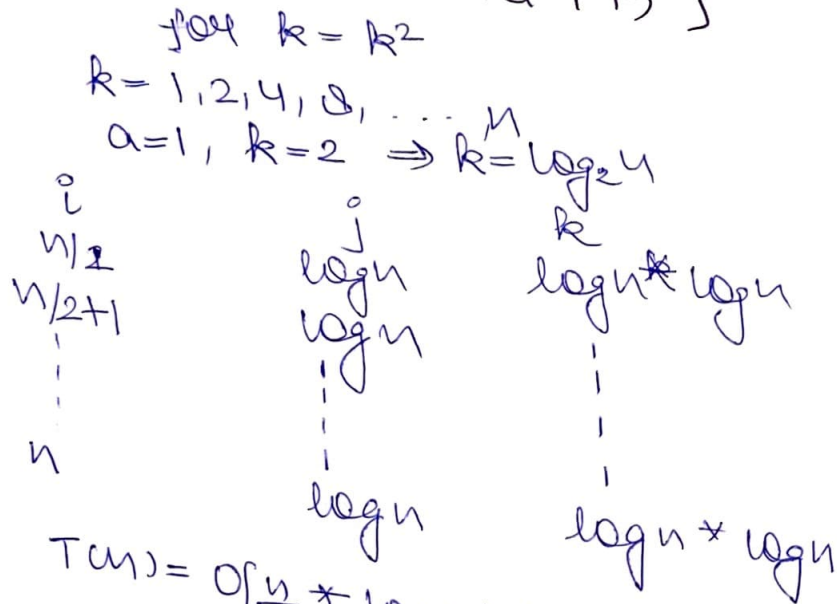 for k = k2
k = 1, 2, 4, 8, .... n
a=1, k=2 ⇒ k = log₂n
i j k
n/2 logn logn * logn
n/2+1 logn
n logn logn * logn
T(n) = O(n *